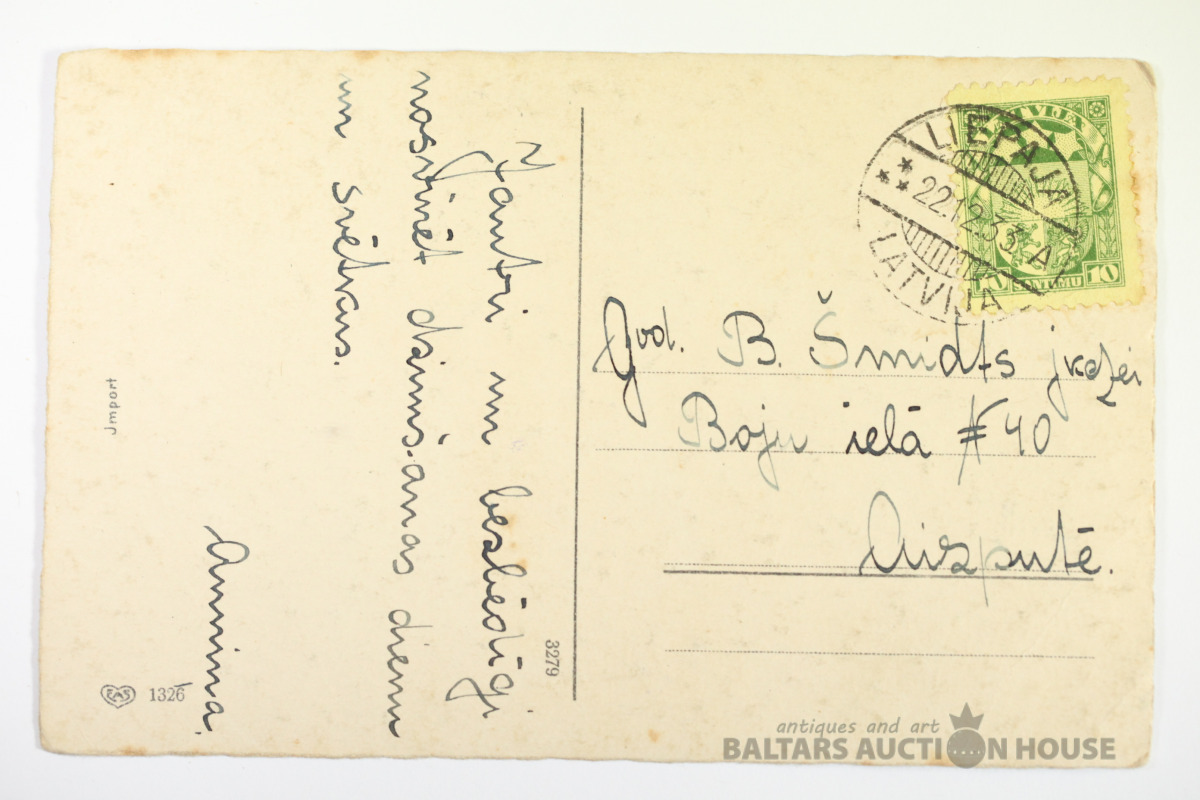 Jautri un bezbēdīgi
nosvinēt dzimšanas dienu
un svētkus.
Annina.
3279
Import
EAS 1326
LATVIJA
10 SANTIMU 10
LIEPAJA
22.12.33. A
LATVIJA
God. B. Šmidts jkdzei
Boju ielā # 40
Aizputē.
antiques and art
BALTARS AUCTION HOUSE